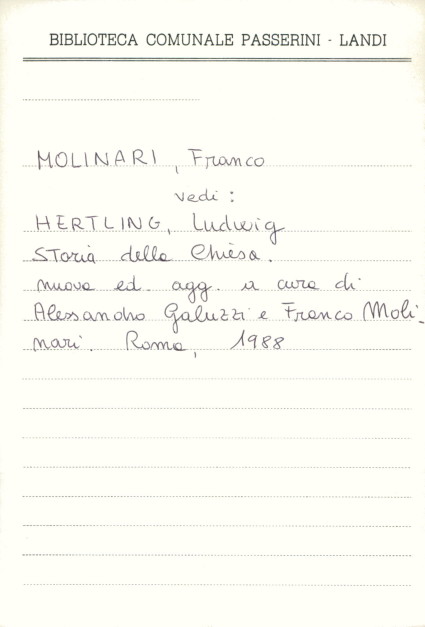 BIBLIOTECA COMUNALE PASSERINI - LANDI
MOLINARI, Franco
vedi:
HERTLING, Ludwig
Storia della Chiesa.
nuova ed. agg. a cura di
Alessandro Galuzzi e Franco Moli-
nari. Roma, 1988